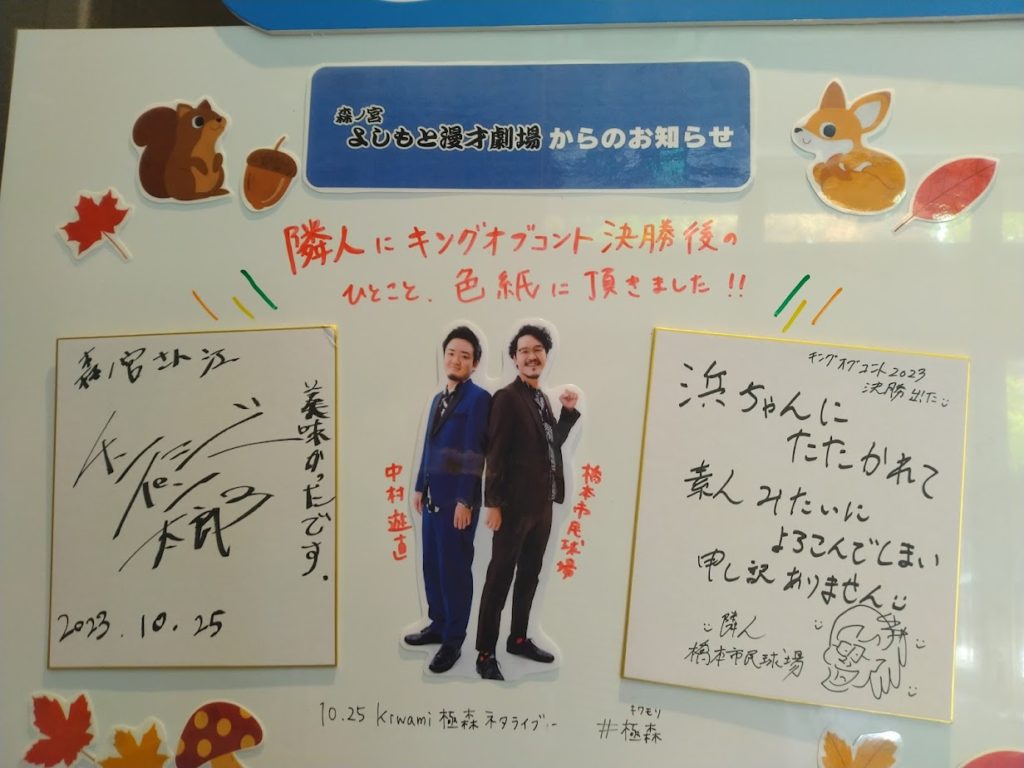 森ノ宮
よしもと漫才劇場からのお知らせ
隣人にキングオブコント決勝後の
ひとこと、色紙に頂きました!!
森ノ宮さん江
美味かったです。
2023.10.25
中村遊直
橋本市民球場
キングオブコント2023
決勝出た
浜ちゃんに
たたかれて
素人みたいに
よろこんでしまい
申し訳ありません
隣人
橋本市民球場
10.25 kiwami極森ネタライブ
キワモリ
#極森